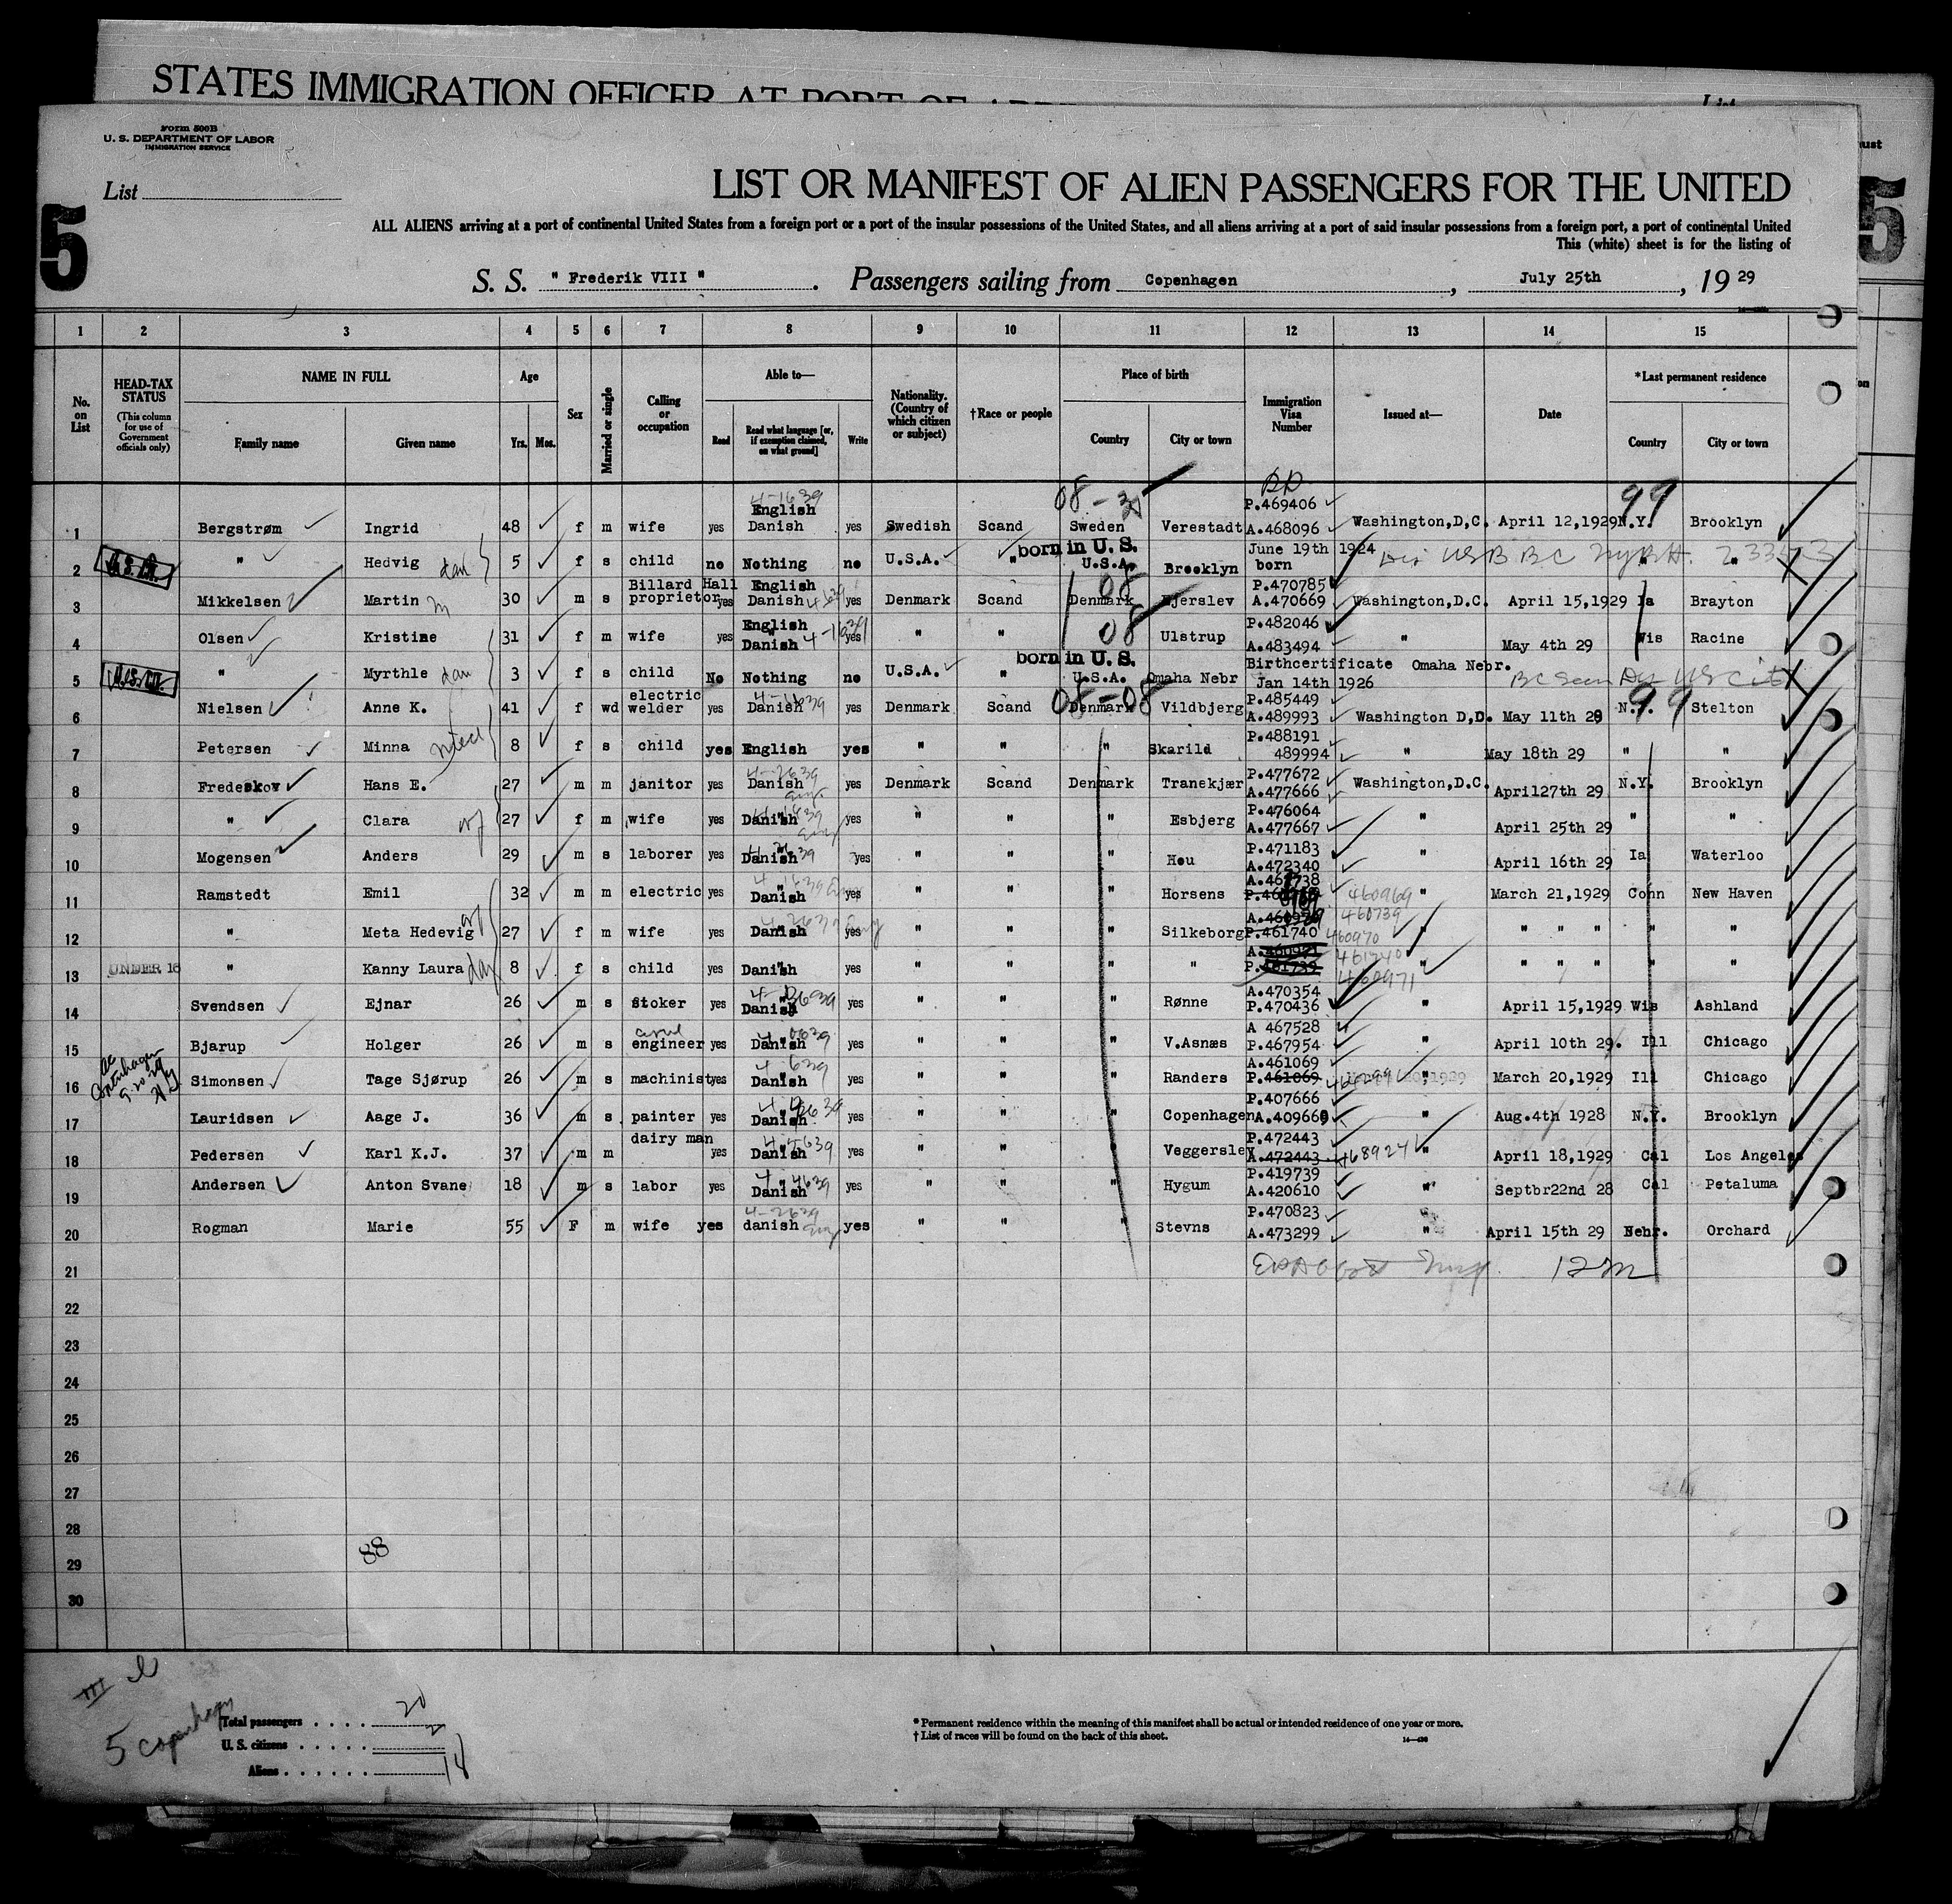 STATES IMMIGRATION OFFICER AT PORT OF
List
Form 500B
U. S. DEPARTMENT OF LABOR
IMMIGRATION SERVICE
List
5
LIST OR MANIFEST OF ALIEN PASSENGERS FOR THE UNITED
ALL ALIENS arriving at a port of continental United States from a foreign port or a port of the insular possessions of the United States, and all aliens arriving at a port of said insular possessions from a foreign port, a port of continental United
This (white) sheet is for the listing of
5
S. S. " Frederik VIII " . Passengers sailing from Copenhagen , July 25th , 19 29
1 2 3 4 5 6 7 8 9 10 11 12 13 14 15
No. on List
HEAD-TAX STATUS (This column for use of Government officials only)
NAME IN FULL Family name Given name
Age Yrs. Mos.
Sex
Married or single
Calling or occupation
Able to— Read Read what language [or, if exemption claimed, on what ground] Write
Nationality. (Country of which citizen or subject)
†Race or people
Place of birth Country City or town
Immigration Visa Number
Issued at—
Date
*Last permanent residence Country City or town
08 - 99
4-1639 English P.469406
1 Bergstrøm Ingrid 48 f m wife yes Danish yes Swedish Scand Sweden Verestadt A.468096 Washington,D,C. April 12,1929 N.Y. Brooklyn
born in U. S. June 19th 1924
2 " Hedvig dau 5 f s child no Nothing no U.S.A. " U.S.A. Brooklyn born " "
Billard Hall English 08 P.470785
3 Mikkelsen Martin m 30 m s proprietor yes Danish yes Denmark Scand Denmark Bjerslev A.470669 Washington,D.C. April 15,1929 Ia Brayton
English 08 P.482046
4 Olsen Kristine 31 f m wife yes Danish 4-1639 yes " " Ulstrup A.483494 " May 4th 29 Wis Racine
born in U. S. Birthcertificate Omaha Nebr.
5 " Myrthle dau 3 f s child No Nothing No U.S.A. " U.S.A. Omaha Nebr Jan 14th 1926 BC Seen US Cit
electric 4-1639 08-08 P.485449 99
6 Nielsen Anne K. 41 f wd welder yes Danish yes Denmark Scand Denmark Vildbjerg A.489993 Washington D,D. May 11th 29 N.Y. Stelton
P.488191
7 Petersen Minna niece 8 f s child yes English yes " " " Skarild 489994 " May 18th 29 " "
4-2639 P.477672
8 Fredeskov Hans E. 27 m m janitor yes Danish yes Denmark Scand Denmark Tranekjær A.477666 Washington,D.C. April27th 29 N.Y. Brooklyn
P.476064
9 " Clara wf 27 f m wife yes Danish yes " " " Esbjerg A.477667 " April 25th 29 " "
P.471183
10 Mogensen Anders 29 m s laborer yes Danish yes " " " Hou A.472340 " April 16th 29 Ia Waterloo
11 Ramstedt Emil 32 m m electric yes Danish yes " " " Horsens 460969 " March 21,1929 Conn New Haven
460739
12 " Meta Hedevig wf 27 f m wife yes Danish yes " " " Silkeborg P.461740 460970 " " " " " "
461740
13 UNDER 16 " Kanny Laura dau 8 f s child yes Danish yes " " " " 460971 " " " " " "
A.470354
14 Svendsen Ejnar 26 m s stoker yes Danish yes " " " Rønne P.470436 " April 15,1929 Wis Ashland
A 467528
15 Bjarup Holger 26 m s engineer yes Danish yes " " " V.Asnæs P.467954 " April 10th 29. Ill Chicago
A.461069
16 Simonsen Tage Sjørup 26 m s machinist yes Danish yes " " " Randers P.461069 " March 20,1929 Ill Chicago
P.407666
17 Lauridsen Aage J. 36 m s painter yes Danish yes " " " Copenhagen A.409669 " Aug.4th 1928 N.Y. Brooklyn
dairy man P.472443
18 Pedersen Karl K.J. 37 m m yes Danish yes " " " Veggerslev A.472443 468924 " April 18,1929 Cal Los Angeles
P.419739
19 Andersen Anton Svane 18 m s labor yes Danish yes " " " Hygum A.420610 " Septbr22nd 28 Cal Petaluma
4-2639 P.470823
20 Rogman Marie 55 F m wife yes danish yes " " " Stevns A.473299 " April 15th 29 Nebr. Orchard
21 12 m
22
23
24
25
26
27
28
29 88
30
5 Copenhagen
Total passengers . . . . 20
U. S. citizens . . . . . 2
Aliens . . . . . . 18
* Permanent residence within the meaning of this manifest shall be actual or intended residence of one year or more.
† List of races will be found on the back of this sheet.